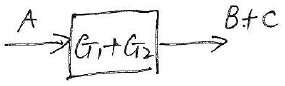 A
G₁+G₂
B+C